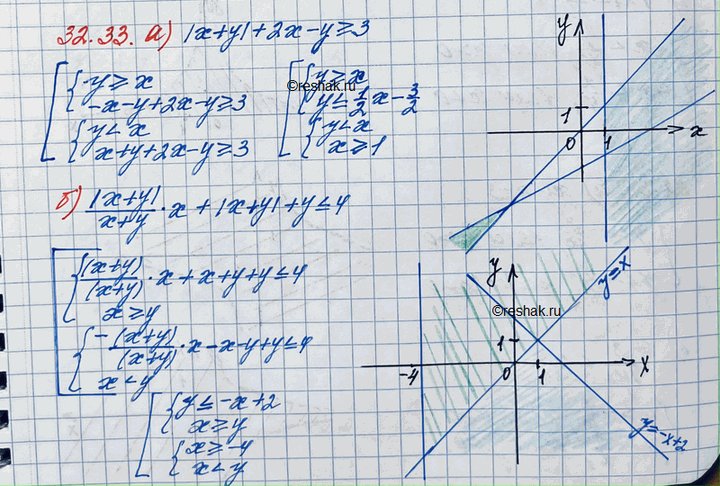 32.33. а) |x+y|+2x-y≥3
[{-y≥x
-x-y+2x-y≥3
{y<x
x+y+2x-y≥3
[{y≥x
y≤1/2x-3/2
{y<x
x≥1
©reshak.ru
y
1
0
1
x
б) |x+y|/x+y·x+|x+y|+y≤4
[{(x+y)/(x+y)·x+x+y+y≤4
x≥y
{-(x+y)/(x+y)·x-x-y+y≤4
x<y
[{y≤-x+2
x≥y
{x≥-4
x<y
©reshak.ru
y
y=x
1
-4
0
1
x
y=-x+2